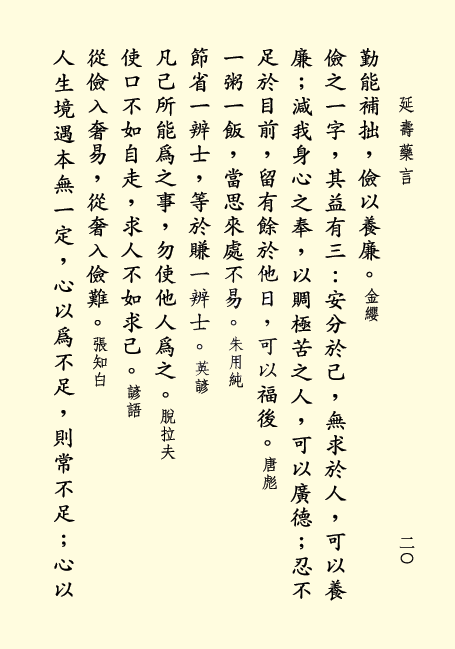 延壽藥言
二〇
勤能補拙，儉以養廉。金纓
儉之一字，其益有三：安分於己，無求於人，可以養
廉；減我身心之奉，以賙極苦之人，可以廣德；忍不
足於目前，留有餘於他日，可以福後。唐彪
一粥一飯，當思來處不易。朱用純
節省一辨士，等於賺一辨士。英諺
凡己所能爲之事，勿使他人爲之。脫拉夫
使口不如自走，求人不如求己。諺語
從儉入奢易，從奢入儉難。張知白
人生境遇本無一定，心以爲不足，則常不足；心以